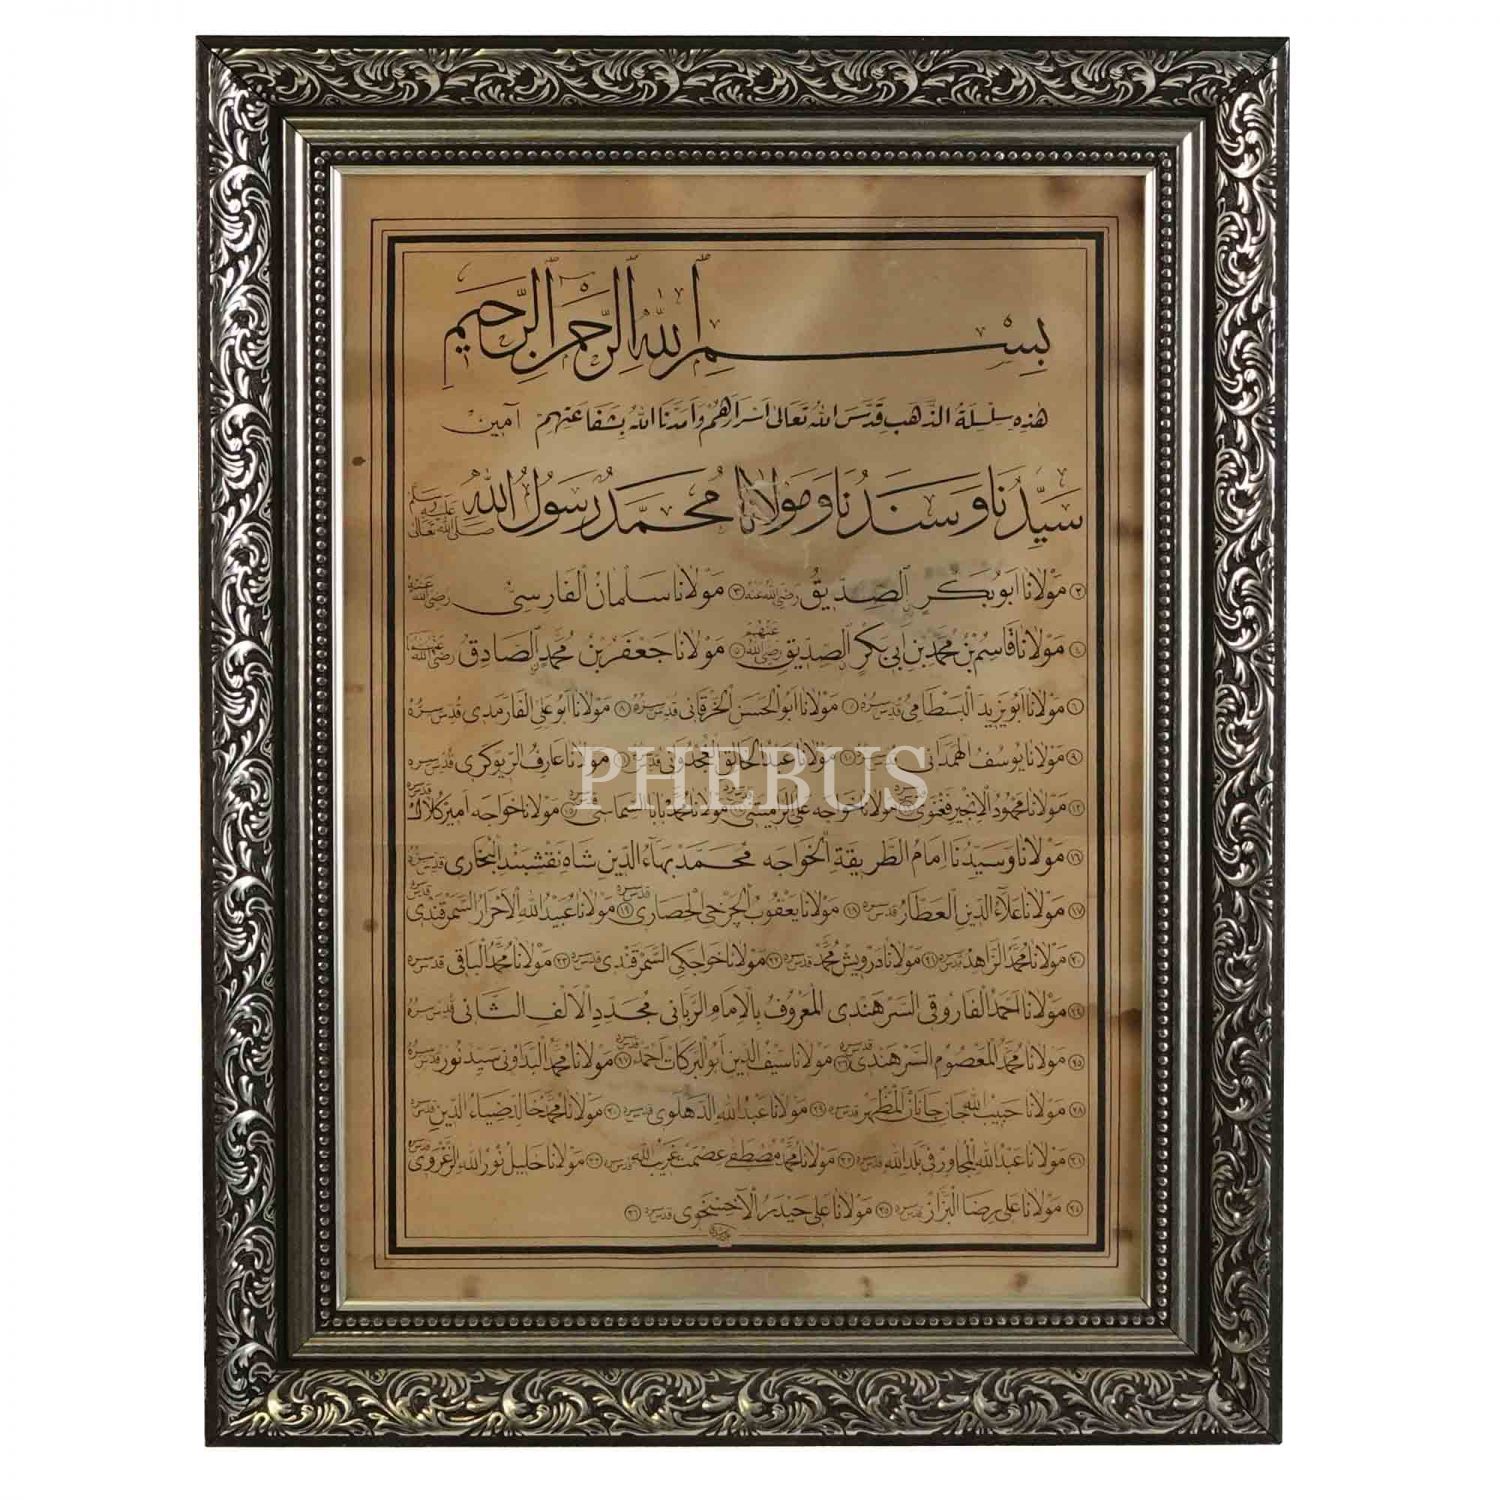 بِسْمِ اللّٰهِ الرَّحْمٰنِ الرَّحِيمِ
هٰذِهِ سِلْسِلَةُ الذَّهَبِ قَدَّسَ اللهُ تَعَالىٰ اَسْرَارَهُمْ وَاَمَدَّنَا اللهُ بِشَفَاعَتِهِمْ اٰمين
سَيِّدُنَا وَسَنَدُنَا وَمَوْلَانَا مُحَمَّدٌ رَسُولُ اللهِ صلى الله تعالى عليه وسلم
٢ مَوْلَانَا اَبُو بَكْرٍ الصِّدِّيقُ رضي الله عنه ٣ مَوْلَانَا سَلْمَانُ الْفَارِسِيّ رضي الله عنه
٤ مَوْلَانَا قَاسِمُ بْنُ مُحَمَّدِ بْنِ اَبِي بَكْرٍ الصِّدِّيقِ رضي الله عنهم ٥ مَوْلَانَا جَعْفَرُ بْنُ مُحَمَّدٍ الصَّادِقُ رضي الله
٦ مَوْلَانَا اَبُو يَزِيدَ الْبَسْطَامِي قدس سره ٧ مَوْلَانَا اَبُو الْحَسَنِ الْخَرْقَانِي قدس سره ٨ مَوْلَانَا اَبُو عَلِي الْفَارْمَدِي قدس سره
٩ مَوْلَانَا يُوسُفُ الْهَمَدَانِي قدس سره ١٠ مَوْلَانَا عَبْدُ الْخَالِقِ الْغُجْدُوَنِي قدس سره ١١ مَوْلَانَا عَارِفُ الرِّيوَكَرِي قدس سره
١٢ مَوْلَانَا مَحْمُودُ الْاِنْجِيرْ فَغْنَوِي قدس سره مَوْلَانَا خَوَاجَه عَلِي الرَّامِيتَنِي قدس سره مَوْلَانَا مُحَمَّدْ بَابَا السَّمَاسِي قدس سره مَوْلَانَا خَوَاجَه اَمِيرْ كُلَالْ قدس سره
١٦ مَوْلَانَا وَسَيِّدُنَا اِمَامُ الطَّرِيقَةِ الْخَوَاجَه مُحَمَّدْ بَهَاءُ الدِّينِ شَاهِ نَقْشِبَنْدِ الْبُخَارِى قدس سره
١٧ مَوْلَانَا عَلَاءُ الدِّينِ الْعَطَّارُ قدس سره ١٨ مَوْلَانَا يَعْقُوبُ الْچَرْخِي الْحِصَارِي قدس سره ١٩ مَوْلَانَا عُبَيْدُ اللهِ الْاَحْرَارُ السَّمَرْقَنْدِي قدس سره
٢٠ مَوْلَانَا مُحَمَّدُ الزَّاهِدُ قدس سره ٢١ مَوْلَانَا دَرْوِيشْ مُحَمَّدْ قدس سره ٢٢ مَوْلَانَا خَوَاجَكِي السَّمَرْقَنْدِي قدس سره ٢٣ مَوْلَانَا مُحَمَّدُ الْبَاقِي قدس سره
٢٤ مَوْلَانَا اَحْمَدُ الْفَارُوقِي السَّرْهَنْدِي الْمَعْرُوفُ بِالْاِمَامِ الرَّبَّانِي مُجَدِّدِ الْاَلْفِ الثَّانِي قدس سره
٢٥ مَوْلَانَا مُحَمَّدُ الْمَعْصُومُ السَّرْهَنْدِي قدس سره ٢٦ مَوْلَانَا سَيْفُ الدِّينِ اَبُو الْبَرَكَاتِ اَحْمَدُ قدس سره ٢٧ مَوْلَانَا مُحَمَّدُ الْبَدَاوَنِي سَيِّدْ نُورْ قدس سره
٢٨ مَوْلَانَا حَبِيبُ اللهِ جَانِ جَانَانْ الْمَظْهَرْ قدس سره ٢٩ مَوْلَانَا عَبْدُ اللهِ الدَّهْلَوِي قدس سره ٣٠ مَوْلَانَا مُحَمَّدْ خَالِدْ ضِيَاءُ الدِّينِ
٣١ مَوْلَانَا عَبْدُ اللهِ الْمُجَاوِرُ فِي بَلَدِ اللهِ قدس سره ٣٢ مَوْلَانَا مُحَمَّدْ مُصْطَفَى عِصْمَتْ غَرِيبُ اللهِ قدس سره ٣٣ مَوْلَانَا خَلِيلْ نُورُ اللهِ الزَّغْرَوِي قدس سره
٣٤ مَوْلَانَا عَلِي رِضَا الْبَزَّازُ قدس سره ٣٥ مَوْلَانَا عَلِي حَيْدَرُ الْاَخِسْخَوِي قدس سره ٣٦
PHEBUS